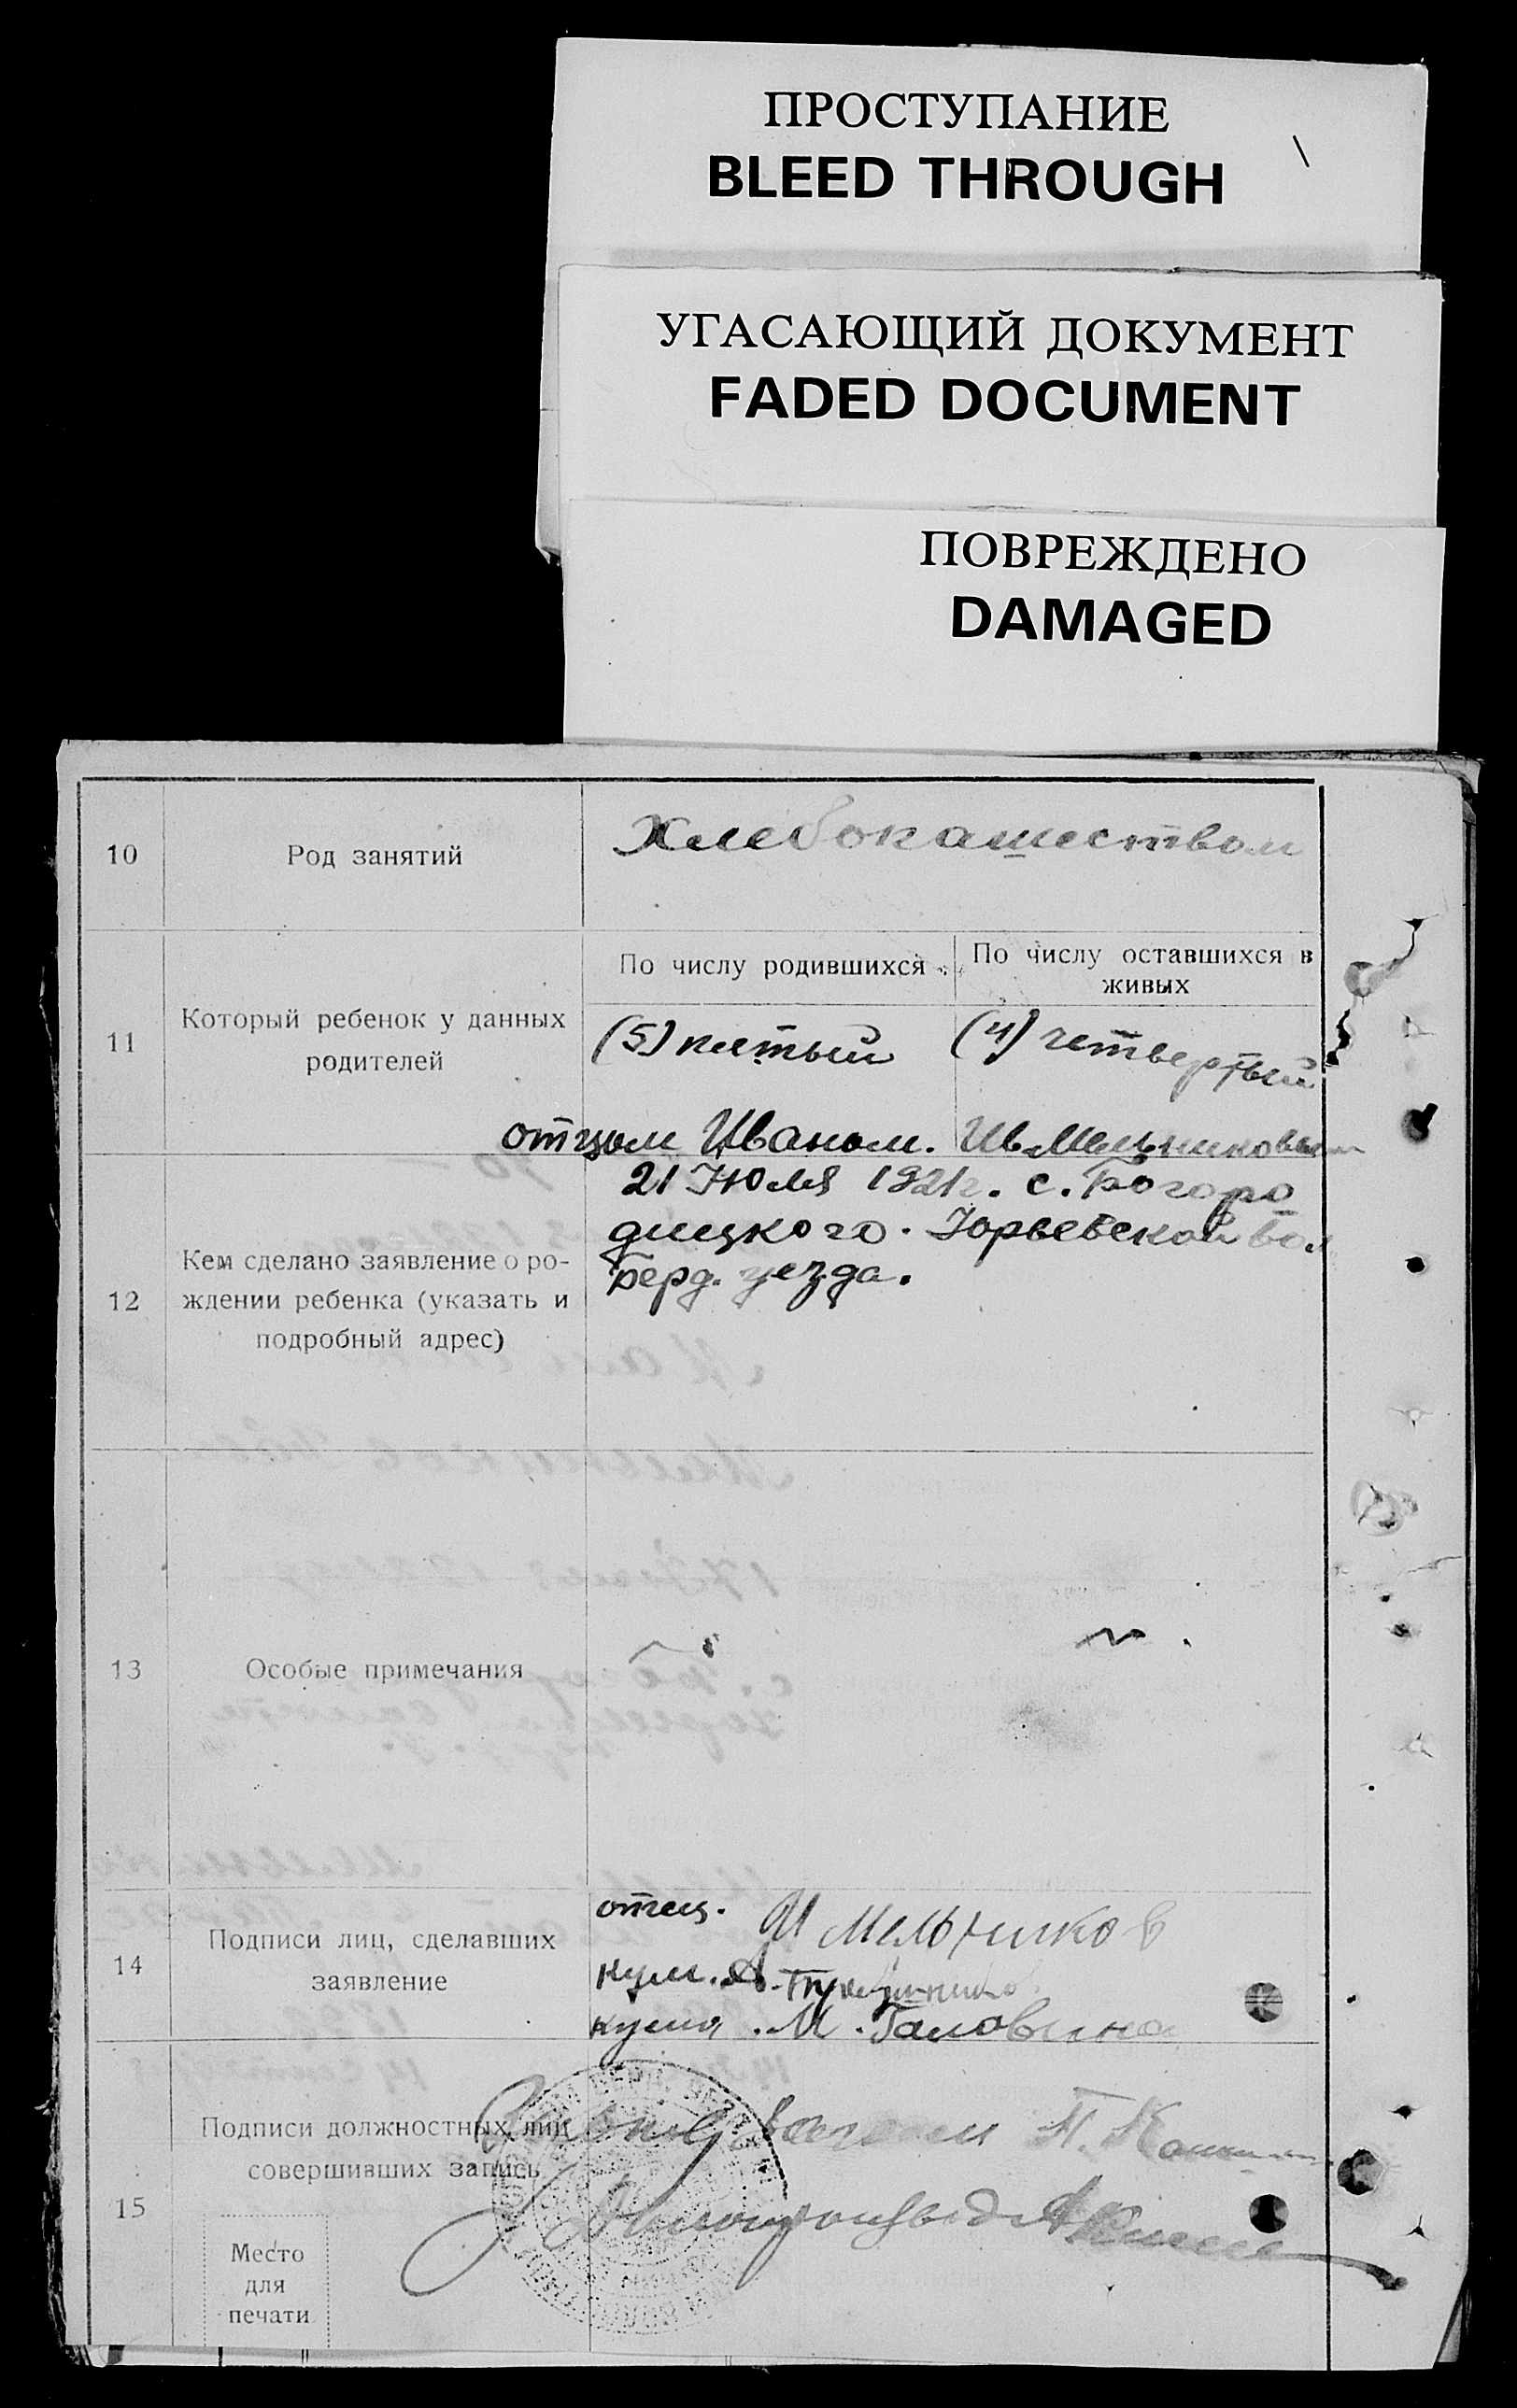 ПРОСТУПАНИЕ
BLEED THROUGH
УГАСАЮЩИЙ ДОКУМЕНТ
FADED DOCUMENT
ПОВРЕЖДЕНО
DAMAGED
10 Род занятий Хлебопашеством
11 Который ребенок у данных
родителей
По числу родившихся
По числу оставшихся в
живых
(5) пятый
(4) четвертый
отцом Иваном. Ив Мельниковым
21 Июля 1921г. с. Богоро
дицкого. Юрьевской вол
Берд. уезда.
12 Кем сделано заявление о ро-
ждении ребенка (указать и
подробный адрес)
13 Особые примечания
14 Подписи лиц, сделавших
заявление
отец. И Мельников
кум. А.
кума. М. Галовина
15 Подписи должностных лиц
совершивших запись
Место
для
печати